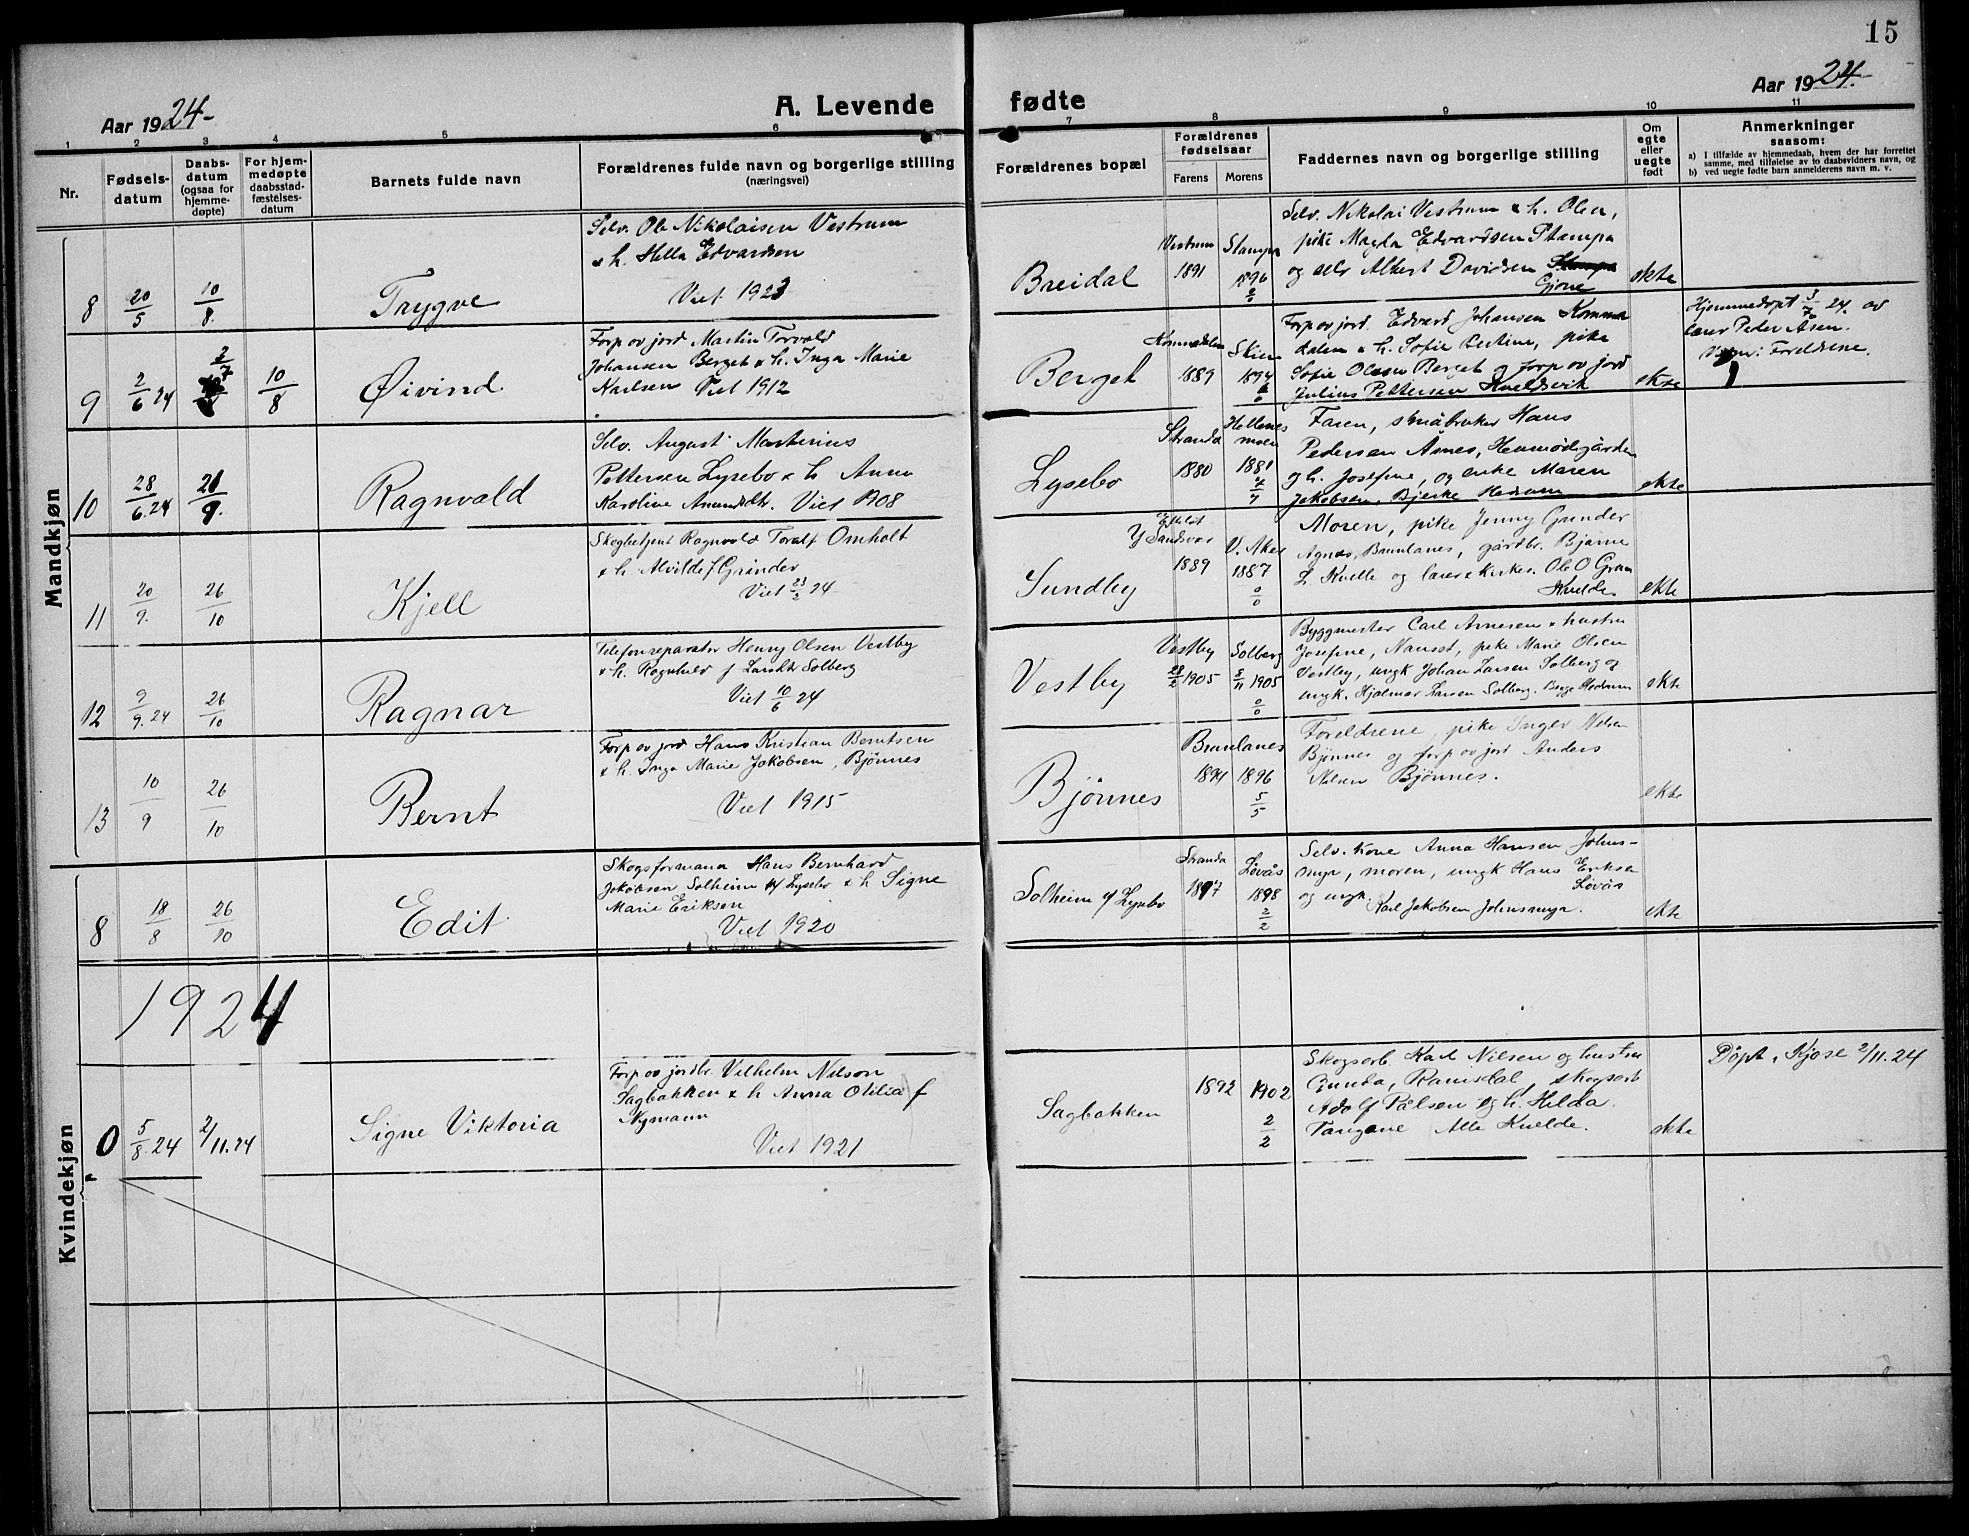 15
Aar 1924-
A. Levende
fødte
Aar 1924.
1 2 3 4 5 6 7 8 9 10 11
Nr.
Fødsels-
datum
Daabs-
datum
(ogsaa for
hjemme-
døpte)
For hjem-
medøpte
daabsstad-
fæstelses-
datum
Barnets fulde navn
Forældrenes fulde navn og borgerlige stilling
(næringsvei)
Forældrenes bopæl
Forældrenes
fødselsaar
Farens
Morens
Faddernes navn og borgerlige stilling
Om
egte
eller
uegte
født
Anmerkninger
saasom:
a) I tilfælde av hjemmedaab, hvem der har forrettet
samme, med tilføielse av to daabsvidners navn, og
b) ved uegte fødte barn anmelderens navn m. v.
Mandkjøn
8
20/5
10/8.
Trygve
Selv. Ole Nikolaisen Vestrum
& h. Hella Edvardsen
Viet 1923
Breidal
Vestrum
1891
Stampa
1896
Selv. Nikolai Vestrum & h. Olea,
pike Magda Edvardsen Stampa
og selv Albert Davidsen Stampa
Gjone
ekte
9
2/6 24
3/7
10/8
Øivind
Forp ov jord Martin Torvald
Johansen Berget & h. Inga Marie
Karlsen Viet 1912
Berget
Kommedalen
1889
Skien
1894
Forp ov jord. Edvard Johansen Komme
dalen & h. Sofie Kistine, pike
Sofie Olsen Berget og forp ov jord
Julius Pettersen Kveldsvik
ekte
Hjemmedøpt 3/7 24. av
lærer Peder Åsen.
Foreldrene.
10
28/6.24
21/9.
Ragnvald
Selv. August Martinius
Pettersen Lysebo & h Anna
Karoline Amundsdtr. Viet 1908
Lysebo
Stranda
1880
moen
1881
Faren, småbruker Hans
Pedersen Asnes, Hemødegården
og h. Josefine, og enke Maren
Jakobsen, Bjerke Hedrum
ekte
11
20/9.
26/10
Kjell
Skogbetjent Ragnvald Toralf Omholt
& h. Alvilde f Grinder
Viet 23/2 24
Sundby
Y Sandsvær
1889
V. Aker
1887
0/0
Moren, pike Jenny Grinder
Agnes, Brunlanes, gårdbr. Bjarne
L. Kvelle og lærer & kirkes. Ole O Gran
Kvelde.
ekte
12
2/9.24
26/10
Ragnar
Telefonreparatør Henry Olsen Vestby
& h. Ragnhild f Larsdtr Solberg
Viet 10/6 24
Vestby
Vestby
28/2 1905
Solberg
5/11 1905
0/0
Byggmester Carl Arnesen & hustru
Josefine, Nansset, pike Marie Olsen
Vestby, ungk Johan Larsen Solberg og
ungk. Hjalmar Larsen Solberg. Berge Hedrum
ekte
13
10/9
26/10
Bernt
Forp ov jord Hans Kristian Berntsen
& h. Inga Marie Jakobsen, Bjønnes
Viet 1915
Bjønnes
Brunlanes
1891
1896
5/5
Foreldrene, pike Inger Nilsen
Bjønnes og forp ov jord Anders
Nilsen Bjønnes.
ekte
Kvindekjøn
8
18/8
26/10
Edit
Skogsformann Hans Bernhard
Jakobsen Solheim u/ Lysebo & h Signe
Marie Eriksen
Viet 1920
Solheim u/ Lysebo
Stranda
1897
Løvås
1898
2/2
Selv. kone Anna Hansen Johns-
myr, moren, ungk Hans Eriksen
Løvås
og ungk. Karl Jakobsen Johnsmyr.
ekte
1924
0
5/8.24
2/11.24
Signe Viktoria
Forp ov jordbr. Vilhelm Nilsen
Sagbakken & h Anna Otilia f
Nymann
Viet 1921
Sagbakken
1892
1902
2/2
Skogsarb. Karl Nilsen og hustru
Gunda, Ramsdal, skogsarb
Adolf Pålsen og h. Hilda
Tangene Alle Kvelde.
ekte
Döpt i Kjose 2/11.24